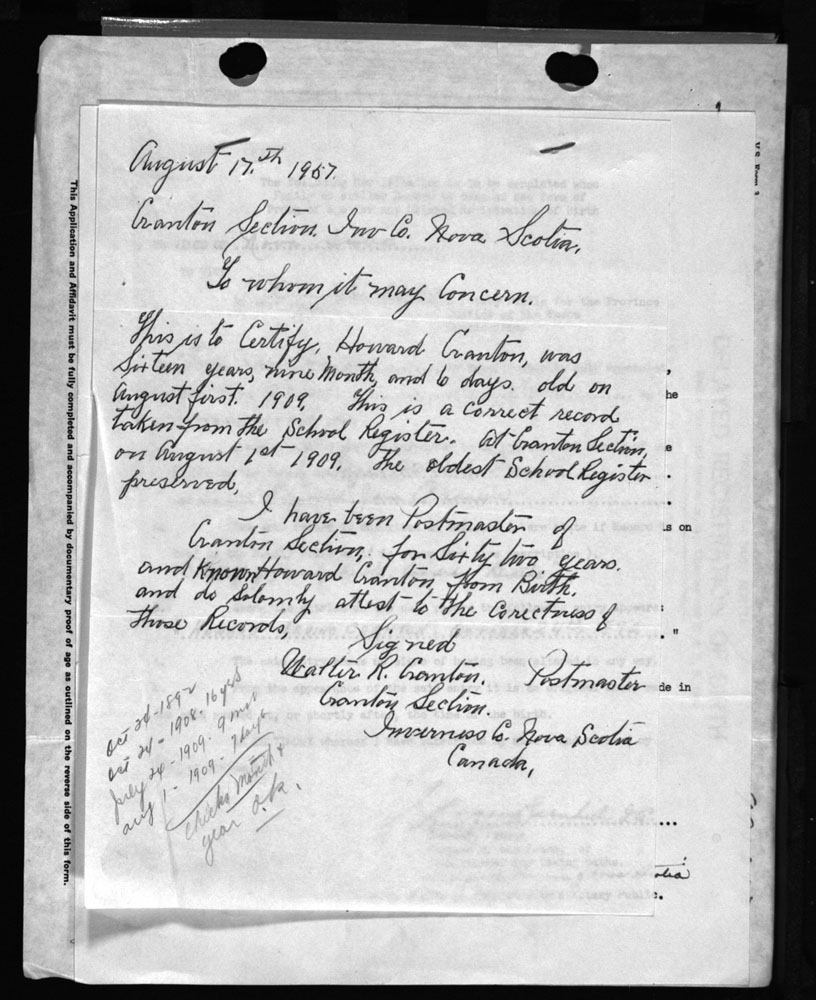 August 17.th 1957.
Cranton Section. Inv Co. Nova Scotia,
To whom it may Concern.
This is to Certify, Howard Cranton, was
Sixteen years, nine Month, and 6 days. old on
August first. 1909. This is a correct record
taken from the School Register. at Cranton Section,
on August 1st 1909. The oldest School Register
preserved,
I have been Postmaster of
Cranton Section, for Sixty two years.
and Known Howard Cranton, from Birth.
and do Solomly attest to the Corectness of
those Records,
Signed
Walter R. Cranton. Postmaster
Cranton Section.
Inverness Co. Nova Scotia
Canada,
Oct 24 - 1892
Oct 24 - 1908 - 16 yrs
July 24 - 1909 - 9 mos
Aug 1 - 1909 - 7 days
checks month &
year o.k.
This Application and Affidavit must be fully completed and accompanied by documentary proof of age as outlined on the reverse side of this form.
he
is on
de in